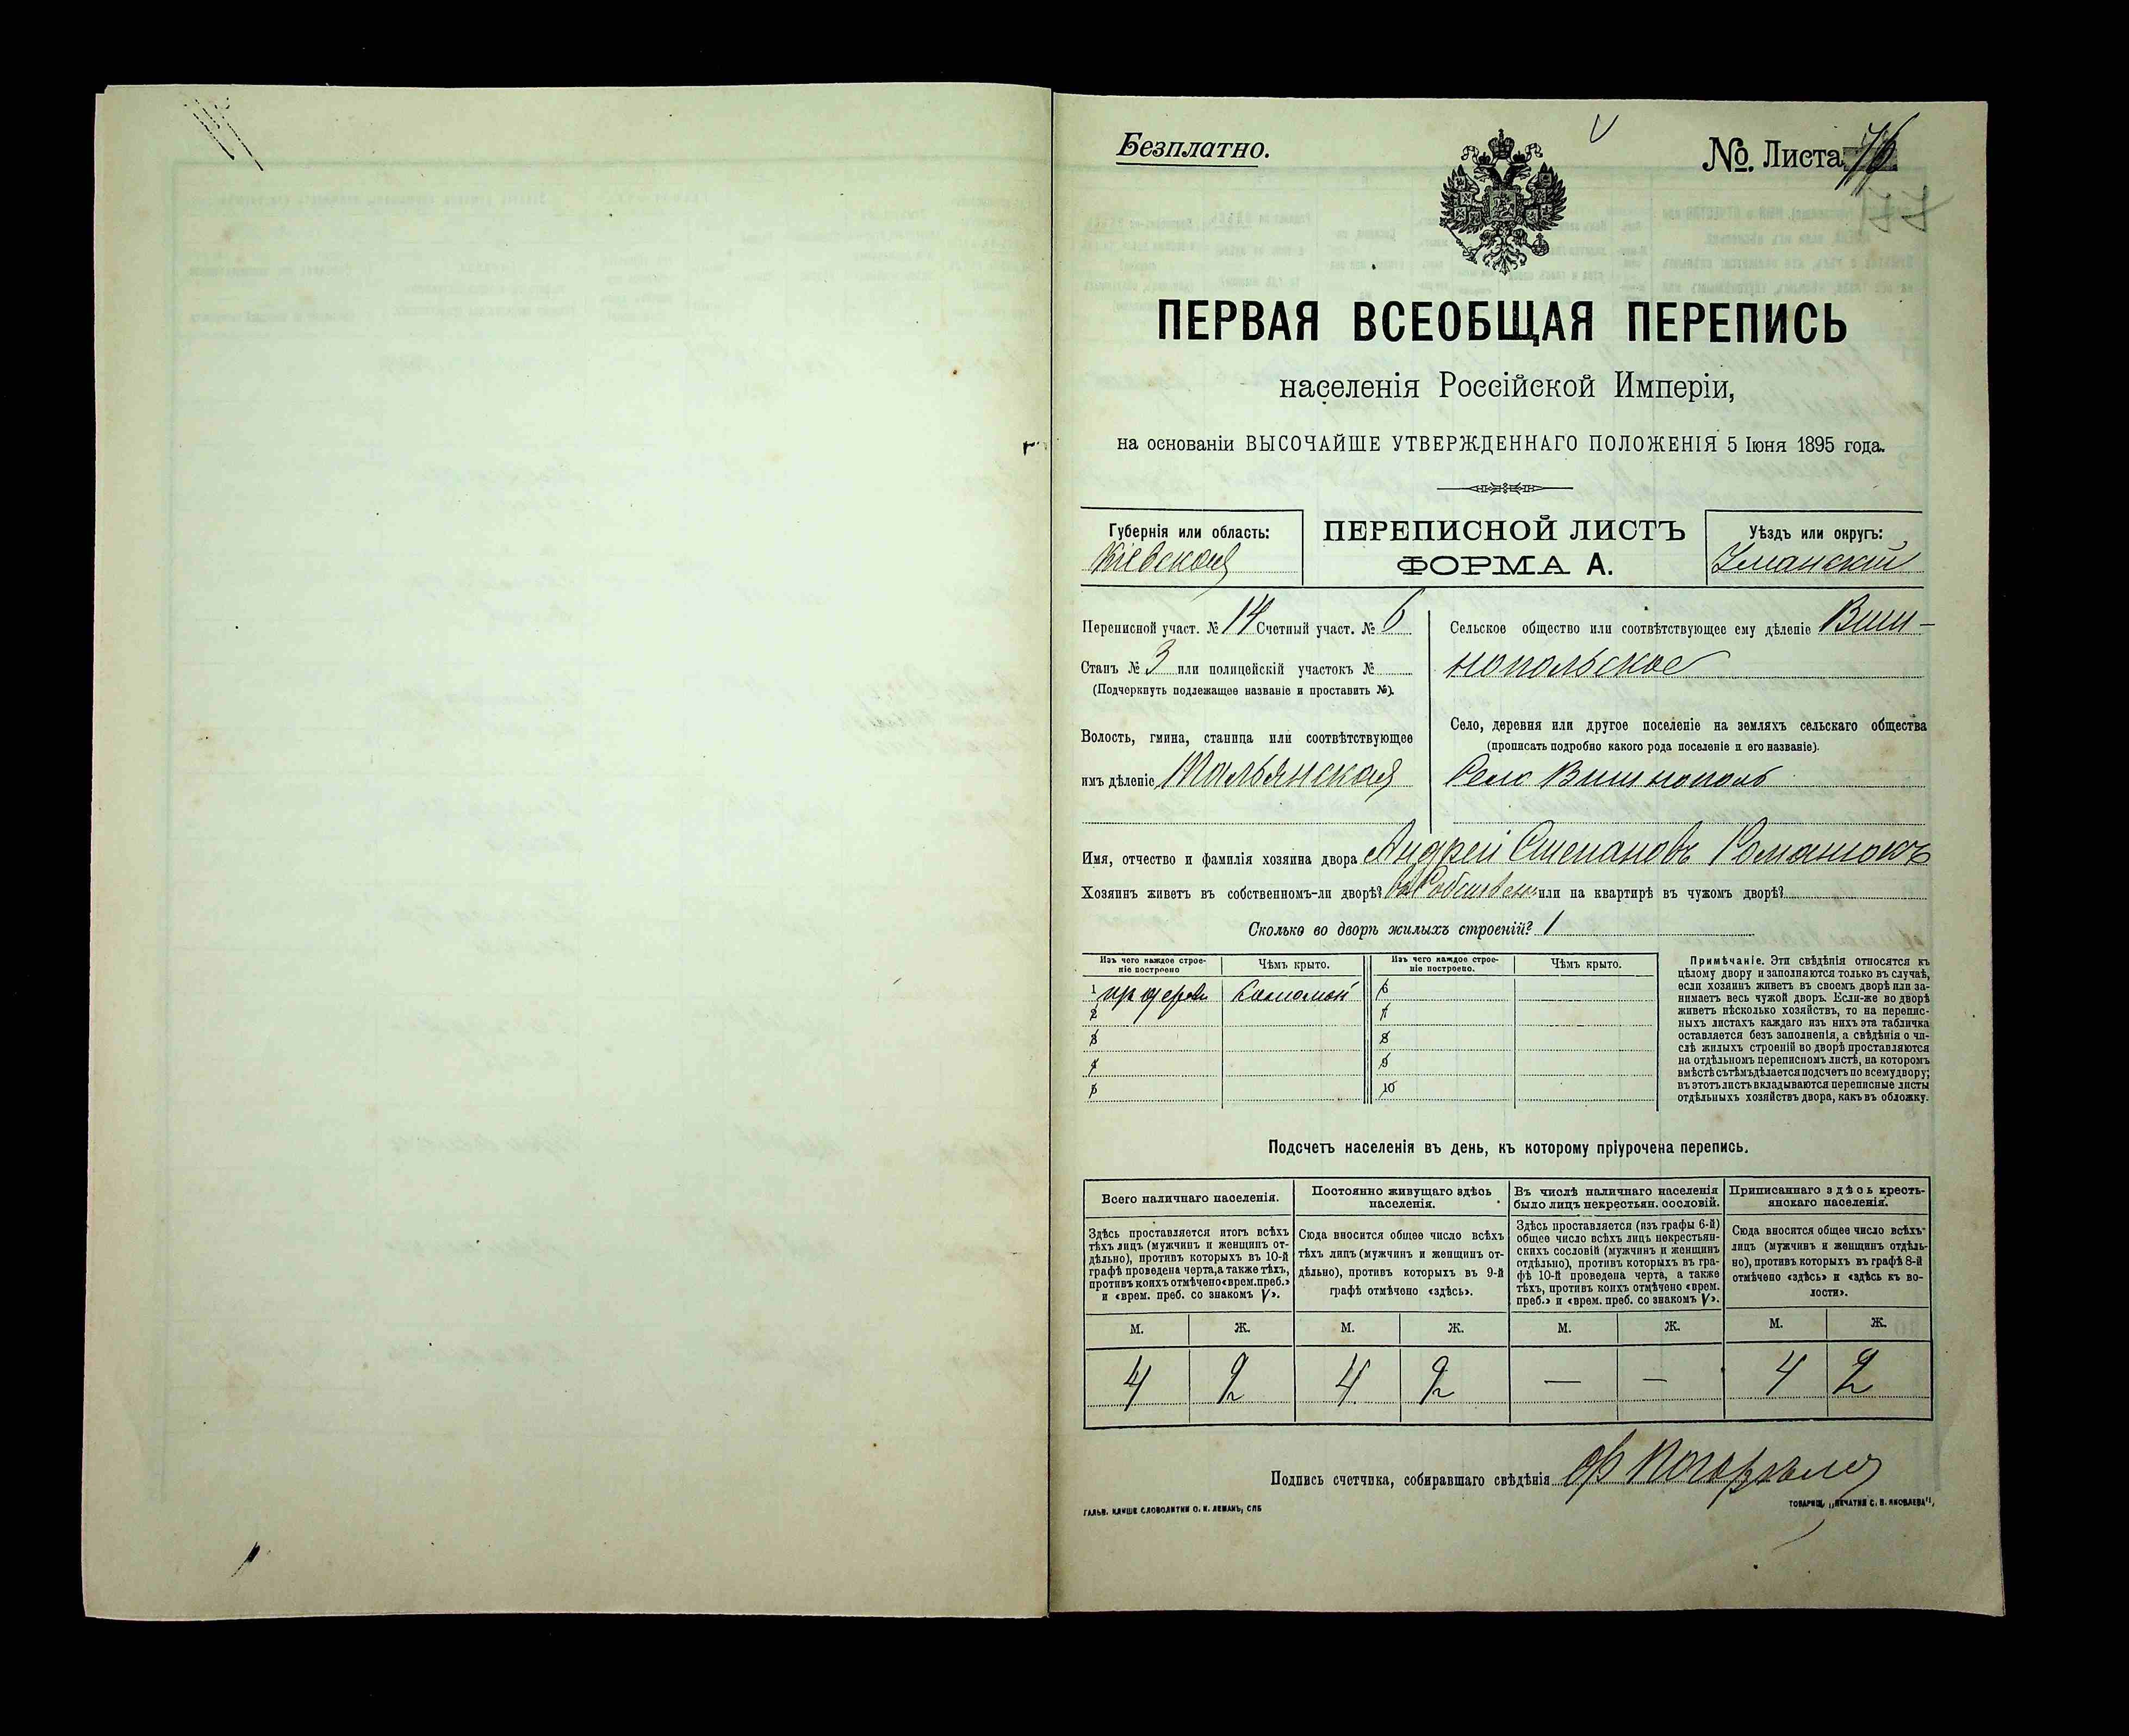 Безплатно.
№. Листа 76
77
ПЕРВАЯ ВСЕОБЩАЯ ПЕРЕПИСЬ
населенія Россійской Имперіи,
на основаніи ВЫСОЧАЙШЕ УТВЕРЖДЕННАГО ПОЛОЖЕНІЯ 5 Іюня 1895 года.
Губернія или область:
Кіевская
ПЕРЕПИСНОЙ ЛИСТЪ
ФОРМА А.
Уѣздъ или округъ:
Уманскій
Переписной участ. № 14 Счетный участ. № 6
Станъ № 3 или полицейскій участокъ №
(Подчеркнуть подлежащее названіе и проставить №).
Волость, гмина, станица или соотвѣтствующее
имъ дѣленіе Тальянская
Сельское общество или соотвѣтствующее ему дѣленіе Виш-
нопольское
Село, деревня или другое поселеніе на земляхъ сельскаго общества
(прописать подробно какого рода поселеніе и его названіе).
Село Вишнополь
Имя, отчество и фамилія хозяина двора Андрей Степановъ Романюкъ
Хозяинъ живетъ въ собственномъ-ли дворѣ? Въ собствен. или на квартирѣ въ чужомъ дворѣ?
Сколько во дворѣ жилыхъ строеній? 1
Изъ чего каждое строе-
ніе построено
Чѣмъ крыто.
Изъ чего каждое строе-
ніе построено.
Чѣмъ крыто.
1 дерев соломой
2
3
4
5
6
7
8
9
10
Примѣчаніе. Эти свѣдѣнія относятся къ
цѣлому двору и заполняются только въ случаѣ,
если хозяинъ живетъ въ своемъ дворѣ или за-
нимаетъ весь чужой дворъ. Если-же во дворѣ
живетъ нѣсколько хозяйствъ, то на перепис-
ныхъ листахъ каждаго изъ нихъ эта табличка
оставляется безъ заполненія, а свѣдѣнія о чи-
слѣ жилыхъ строеній во дворѣ проставляются
на отдѣльномъ переписномъ листѣ, на которомъ
вмѣстѣ съ тѣмъ дѣлается подсчетъ по всему двору;
въ этотъ листъ вкладываются переписные листы
отдѣльныхъ хозяйствъ двора, какъ въ обложку.
Подсчетъ населенія въ день, къ которому пріурочена перепись.
Всего наличнаго населенія.
Здѣсь проставляется итогъ всѣхъ
тѣхъ лицъ (мужчинъ и женщинъ от-
дѣльно), противъ которыхъ въ 10-й
графѣ проведена черта, а также тѣхъ,
противъ коихъ отмѣчено «врем. преб.»
и «врем. преб. со знакомъ V».
Постоянно живущаго здѣсь
населенія.
Сюда вносится общее число всѣхъ
тѣхъ лицъ (мужчинъ и женщинъ от-
дѣльно), противъ которыхъ въ 9-й
графѣ отмѣчено «здѣсь».
Въ числѣ наличнаго населенія
было лицъ некрестьян. сословій.
Здѣсь проставляется (изъ графы 6-й)
общее число всѣхъ лицъ некрестьян-
скихъ сословій (мужчинъ и женщинъ
отдѣльно), противъ которыхъ въ гра-
фѣ 10-й проведена черта, а также
тѣхъ, противъ коихъ отмѣчено «врем.
преб.» и «врем. преб. со знакомъ V».
Приписаннаго здѣсь кресть-
янскаго населенія.
Сюда вносится общее число всѣхъ
лицъ (мужчинъ и женщинъ отдѣль-
но), противъ которыхъ въ графѣ 8-й
отмѣчено «здѣсь» и «здѣсь къ во-
лости».
М. Ж. М. Ж. М. Ж. М. Ж.
4 2 4 2 — — 4 2
Подпись счетчика, собиравшаго свѣдѣнія
ГАЛЬВ. КЛИШЕ СЛОВОЛИТНИ О. И. ЛЕМАНЪ, СПБ
ТОВАРИЩ. „ПЕЧАТНЯ С. П. ЯКОВЛЕВА“.